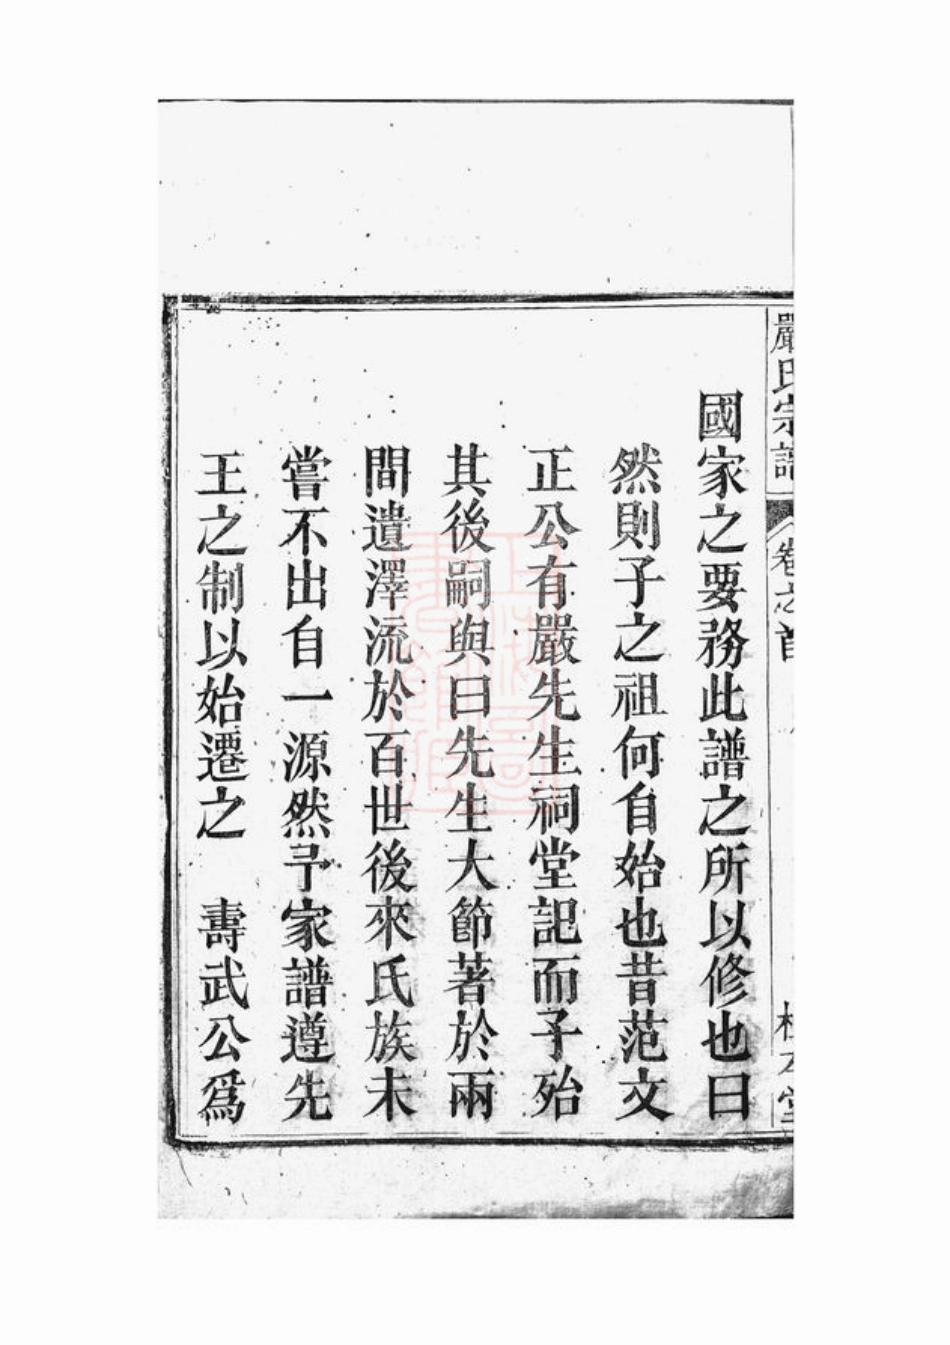 嚴氏宗譜 卷之首
國家之要務此譜之所以修也曰
然則子之祖何自始也昔范文
正公有嚴先生祠堂記而子殆
其後嗣與曰先生大節著於兩
間遺澤流於百世後來氏族未
嘗不出自一源然予家譜遵先
王之制以始遷之 壽武公爲